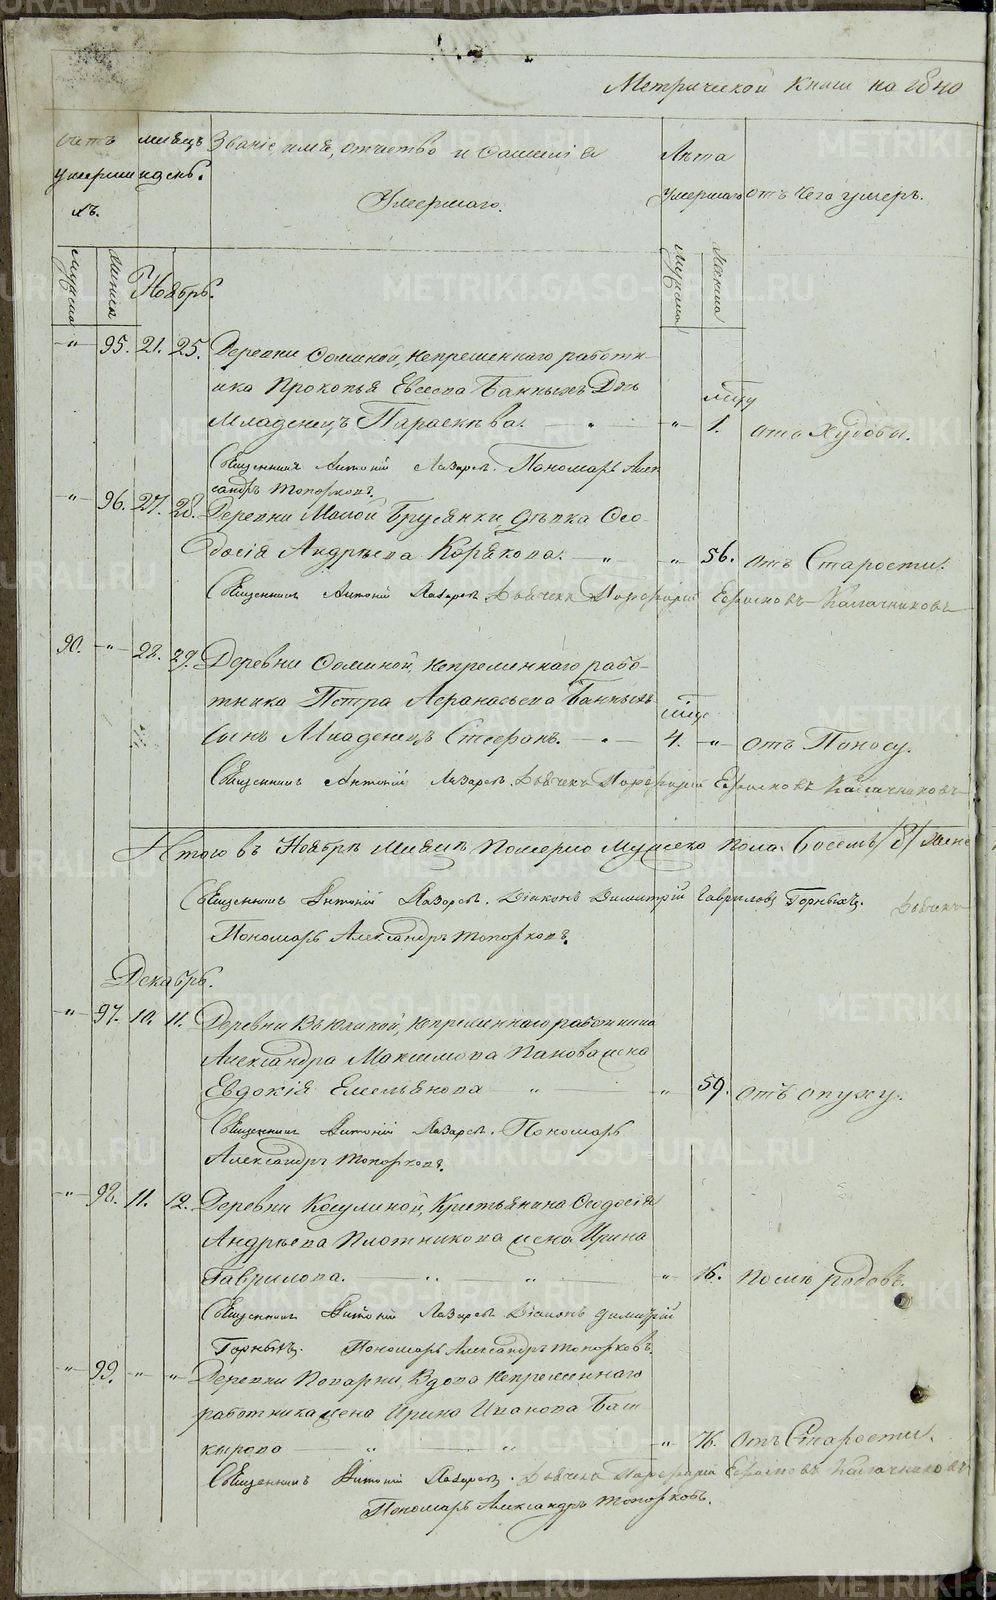 Метрической книги на 1840
счетъ умершихъ.
мѣсяцъ и день.
Званіе, имя, отчество и фамилія
Умершаго.
Лѣта
Умершаго
отъ чего умеръ.
Мужска
Женска
Мужска
Женска
Ноябрь.
-"- 95. 21. 25. Деревни Фоминой, непременнаго работ-
ника Прокопья Евсеева Банныхъ Дчь
Младенецъ Параскѣва. -"- 1. отъ Худобы.
Священникъ Антоній Лазаревъ. Пономарь Алек
сандръ Топорковъ.
-"- 96. 27. 28. Деревни Малой Брусянки, Дѣвка Фео-
досія Андрѣева Корякова. -"- 56. отъ Старости.
Священникъ Антоній Лазаревъ Дьячекъ Порфирій Ефимовъ Калачниковъ
90. -"- 28. 29. Деревни Фоминой, непременнаго рабо-
тника Петра Афанасьева Банныхъ
Сынъ Младенецъ Стефанъ. 4. -"- отъ Поносу.
Священникъ Антоній Лазаревъ. Дьячекъ Порфирій Ефимовъ Калачниковъ
Итого въ Ноябрѣ Мѣсяцѣ Померло Мужеска Пола Восемь /8/ Женс
Священникъ Антоній Лазаревъ. Діаконъ Димитрій Гавриловъ Горныхъ. Дьячекъ
Пономарь Александръ Топорковъ.
Декабрь.
-"- 97. 10. 11. Деревни непременнаго работника
Александра Максимова Панова жена
Евдокія Емельянова -"- 59. отъ опуху.
Священникъ Антоній Лазаревъ. Пономарь
Александръ Топорковъ.
-"- 98. 11. 12. Деревни Косулиной, Крестьянина Феодосія
Андрѣева Плотникова жена Ирина
Гаврилова. -"- После родовъ.
Священникъ Антоній Лазаревъ Діаконъ Димитрій
Горныхъ. Пономарь Александръ Топорковъ.
-"- 99. -"- -"- Деревни Поварни, Вдова непременнаго
работника жена Ирина Иванова Баш
кирова -"- 76. Отъ Старости.
Священникъ Антоній Лазаревъ. Дьячекъ Порфирій Ефимовъ Калачниковъ
Пономарь Александръ Топорковъ.